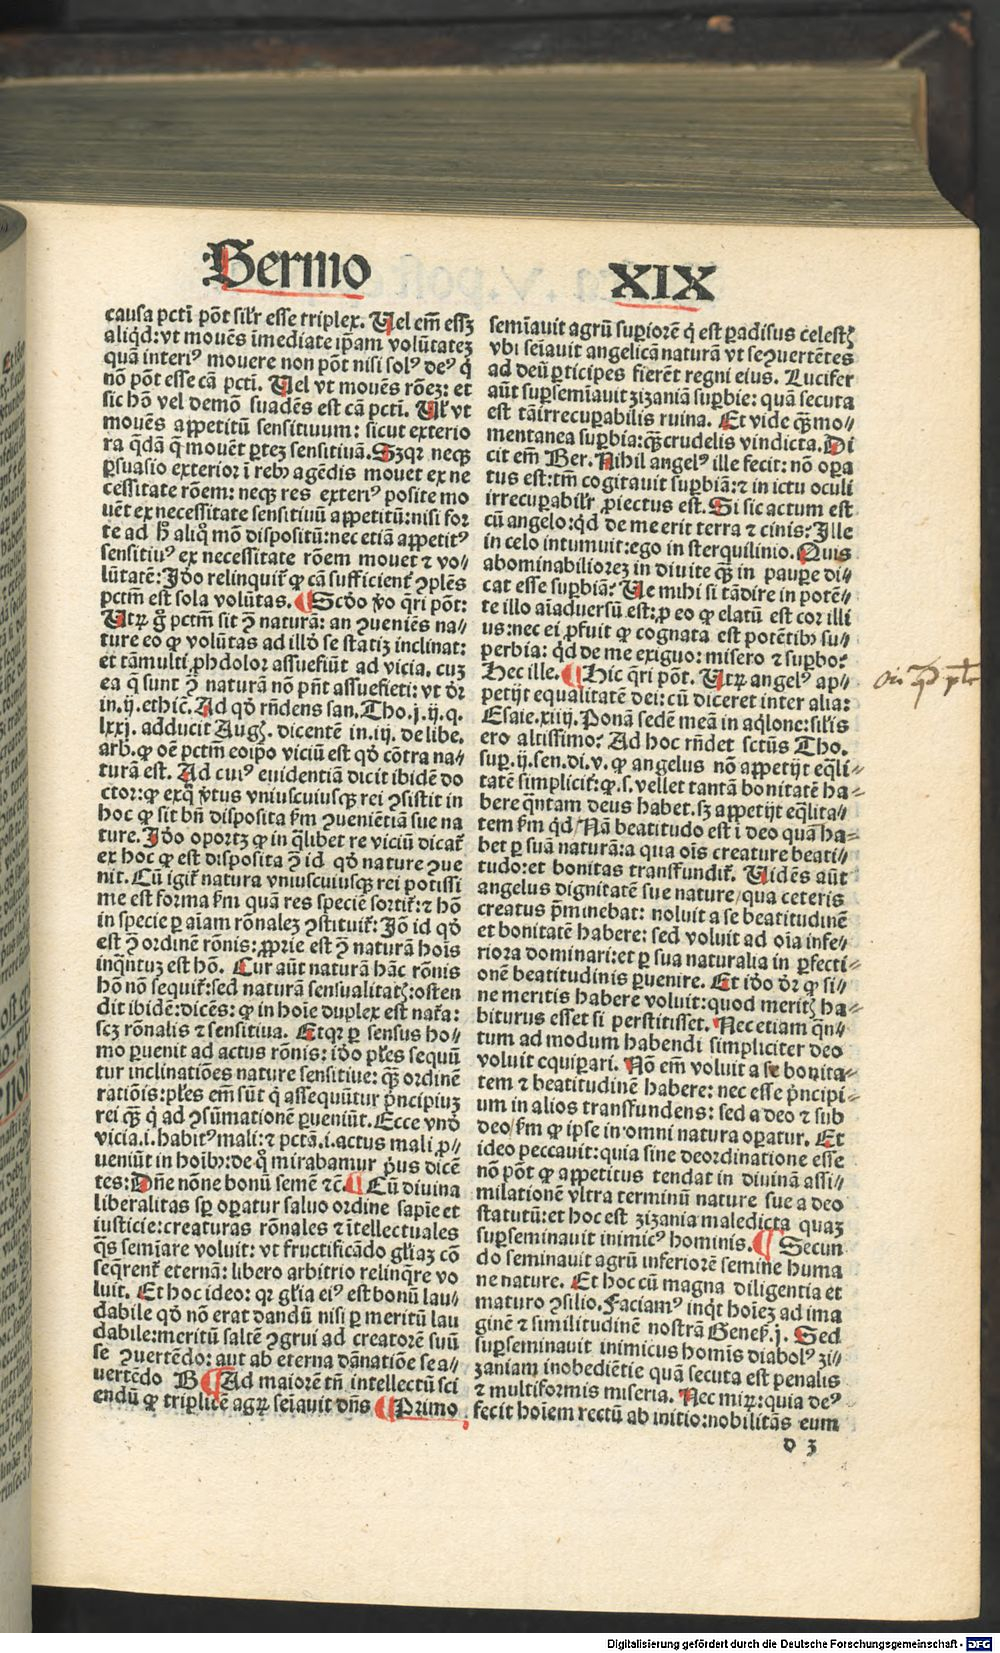 Sermo XIX
causa pcti põt silr esse triplex. Uel em̃ essz
aliqd: vt mouẽs ĩmediate ip̃am volũtatez
quã interiꝰ mouere non põt nisi solꝰ deꝰ q̇
nõ põt esse cã pcti. Uel vt mouẽs rõez: et
sic hõ vel demõ suadẽs est cã pcti. Ul̃ vt
mouẽs appetitũ sensitiuum: sicut exterio
ra q̃dã q̃ mouẽt ꝑtez sensitiuã. Szqꝛ neqꝫ
ꝑsuasio exterior ĩ rebꝰ agẽdis mouet ex ne
cessitate rõem: neqꝫ res exteriꝰ posite mo
uẽt ex necessitate sensitiuũ appetitũ: nisi for
te ad h̃ aliq̃ mõ dispositũ: nec etiã appetitꝰ
sensitiuꝰ ex necessitate rõem mouet ⁊ vo⸗
lũtatẽ: Iđo relinquit̃ ꝙ cã sufficient̃ ꝯplẽs
pctm̃ est sola volũtas. ¶ Scđo ꝟo q̃ri põt:
Utꝝ g̊ pctm̃ sit ꝯ̃ naturã: an ꝯueniẽs na⸗
ture eo ꝙ volũtas ad illđ se statiz inclinat:
et tã multi ꝓhdolor assuefiũt ad vicia. cuz
ea q̃ sunt ꝯ̃ naturã nõ pñt assuefieri: vt đr
in. ij. ethic̃. Ad qđ rñdens san. Tho. j. ij. q.
lxxj. adducit Augꝫ. dicentẽ in. iij. de libe.
arb. ꝙ oẽ pctm̃ eoip̃o viciũ est qđ cõtra na⸗
turã est. Ad cuiꝰ euidentiã dicit ibidẽ do
ctor: ꝙ exq̊ ꝟtus vniuscuiusqꝫ rei ꝯsistit in
hoc ꝙ sit bñ disposita fm̃ ꝯueniẽtiã sue na
ture. Iđo oportꝫ ꝙ in q̃libet re viciũ dicat̃
ex hoc ꝙ est disposita ꝯ̃ id qđ nature ꝯue
nit. Cũ igit̃ natura vniuscuiusqꝫ rei potissi
me est forma fm̃ quã res speciẽ sortit̃: ⁊ hõ
in specie ꝑ aĩam rõnalez ꝯstituit̃: Iõ id qđ
est ꝯ̃ ordinẽ rõnis: ꝓprie est ꝯ̃ naturã hoĩs
inq̃ntuz est hõ. Cur aũt naturã hãc rõnis
hõ nõ sequit̃: sed naturã sensualitatꝭ: osten
dit ibidẽ: dicẽs: ꝙ in hoĩe duplex est nat̃a:
scꝫ rõnalis ⁊ sensitiua. Etqꝛ ꝑ sensus ho⸗
mo ꝑuenit ad actus rõnis: iđo pl̃es sequũ
tur inclinatiões nature sensitiue: q̃ꝫ ordinẽ
ratiõis: pl̃es em̃ sũt q̇ assequũtur p̃ncipiuz
rei q̃ꝫ q̇ ad ꝯsũmationẽ ꝑueniũt. Ecce vnđ
vicia. i. habitꝰ mali: ⁊ pctã. i. actus mali ꝓ⸗
ueniũt in hoĩbꝰ: de q̊ mirabamur p̃us dicẽ
tes: Dñe nõne bonũ semẽ ⁊c̃. ¶ Cũ diuina
liberalitas sp̃ operatur saluo ordine sapĩe et
iusticie: creaturas rõnales ⁊ ĩtellectuales
q̃s semĩare voluit: vt fructificãdo gl̃iaz cõ
seq̃rent̃ eternã: libero arbitrio relinq̃re vo
luit. Et hoc ideo: qꝛ gl̃ia eiꝰ est bonũ lau⸗
dabile qđ nõ erat dandũ nisi ꝑ meritũ lau
dabile: meritũ saltẽ ꝯgrui ad creatorẽ suũ
se ꝯuertẽdo: aut ab eterna dãnatiõe se a⸗
uertẽdo B ¶ Ad maiorẽ tñ intellectũ sci
endũ ꝙ tripl̃it̃ agꝝ seĩauit dñs ¶ Primo
semĩauit agrũ suꝑiorẽ q̇ est ꝑadisus celestꝭ
vbi seĩauit angelicã naturã vt se ꝯuertẽtes
ad deũ ꝑticipes fierẽt regni eius. Lucifer
aũt suꝑsemĩauit zizaniã suꝑbie: quã secuta
est tã irrecuꝑabilis ruina. Et vide q̃ꝫ mo⸗
mentanea suꝑbia: q̃ꝫ crudelis vindicta. Di
cit em̃ Ber. Nihil angelꝰ ille fecit: nõ oꝑa
tus est: tm̃ cogitauit suꝑbiã: ⁊ in ictu oculi
irrecuꝑabilr̃ ꝓiectus est. Si sic actum est
cũ angelo: qđ de me erit terra ⁊ cinis: Ille
in celo intumuit: ego in sterquilinio. Quis
abominabiliorez in diuite q̃ꝫ in pauꝑe di⸗
cat esse suꝑbiã: Ue mihi si tã dire in potẽ⸗
te illo aĩaduersũ est: ꝓ eo ꝙ elatũ est cor illi
us: nec ei ꝓfuit ꝙ cognata est potẽtibꝰ su⸗
perbia: qđ de me exiguo: misero ⁊ suꝑbo:
Hec ille. ¶ Hic q̃ri põt. Utꝝ angelꝰ ap⸗
petijt equalitatẽ dei: cũ diceret inter alia:
Esaie. xiiij. Ponã sedẽ meã in aq̃lone: sil̃is
ero altissimo: Ad hoc rñdet sctũs Tho.
suꝑ. ij. sen. di. v. ꝙ angelus nõ appetijt eq̃li⸗
tatẽ simplicit̃: ꝙ. s. vellet tantã bonitatẽ ha⸗
bere q̃ntam deus habet. sꝫ appetijt eq̃lita⸗
tem fm̃ qđ/ Nã beatitudo est ĩ deo quã ha⸗
bet ꝑ suã naturã: a qua oĩs creature beati⸗
tudo: et bonitas transfundit̃. Uidẽs aũt
angelus dignitatẽ sue nature/ qua ceteris
creatus p̃minebat: noluit a se beatitudinẽ
et bonitatẽ habere: sed voluit ad oĩa infe⸗
riora dominari: et ꝑ sua naturalia in ꝑfecti⸗
onẽ beatitudinis ꝑuenire. Et iđo đr ꝙ si⸗
ne meritis habere voluit: quod meritꝭ ha⸗
biturus esset si perstitisset. Nec etiam q̃n⸗
tum ad modum habendi simpliciter deo
voluit equipari. Nõ em̃ voluit a se bonita⸗
tem ⁊ beatitudinẽ habere: nec esse p̃ncipi⸗
um in alios transfundens: sed a deo ⁊ sub
deo/ fm̃ ꝙ ipse in omni natura oꝑatur. Et
ideo peccauit: quia sine deordinatione esse
nõ põt ꝙ appetitus tendat in diuinã assi⸗
milationẽ vltra terminũ nature sue a deo
statutũ: et hoc est zizania maledicta quaz
suꝑseminauit inimicꝰ hominis. ¶ Secun
do seminauit agrũ inferiorẽ semine huma
ne nature. Et hoc cũ magna diligentia et
maturo ꝯsilio. Faciamꝰ inq̃t hoĩez ad ima
ginẽ ⁊ similitudinẽ nostrã Genes̃. j. Sed
suꝑseminauit inimicus homĩs diabolꝰ zi⸗
zaniam inobediẽtie quã secuta est penalis
⁊ multiformis miseria. Nec mirꝝ: quia deꝰ
fecit hoĩem rectũ ab initio: nobilitãs eum
d 3
Digitalisierung gefördert durch die Deutsche Forschungsgemeinschaft - DFG